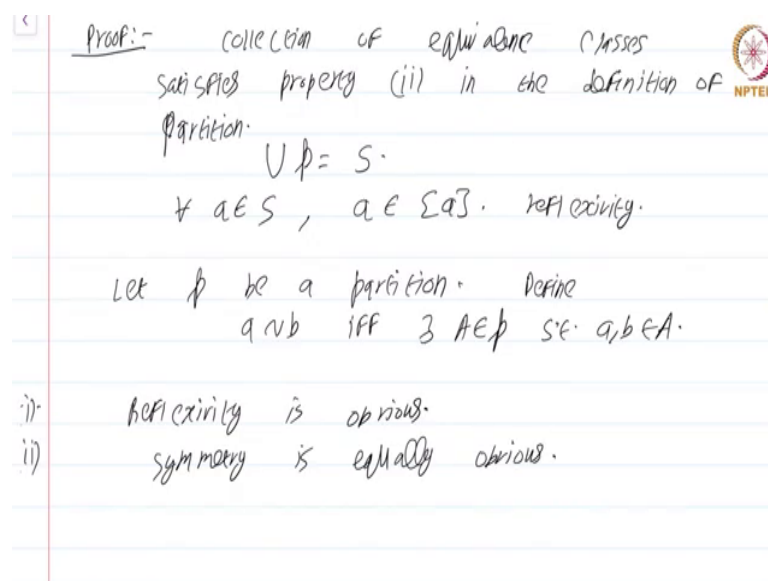 Proof:- collection of equivalence classes
satisfies property (ii) in the definition of
partition.
NPTEL
∪ p = S.
∀ a ∈ S, a ∈ [a]. reflexivity.
Let p be a partition. Define
a ~ b iff ∃ A ∈ p s.t. a, b ∈ A.
i). Reflexivity is obvious.
ii) symmetry is equally obvious.